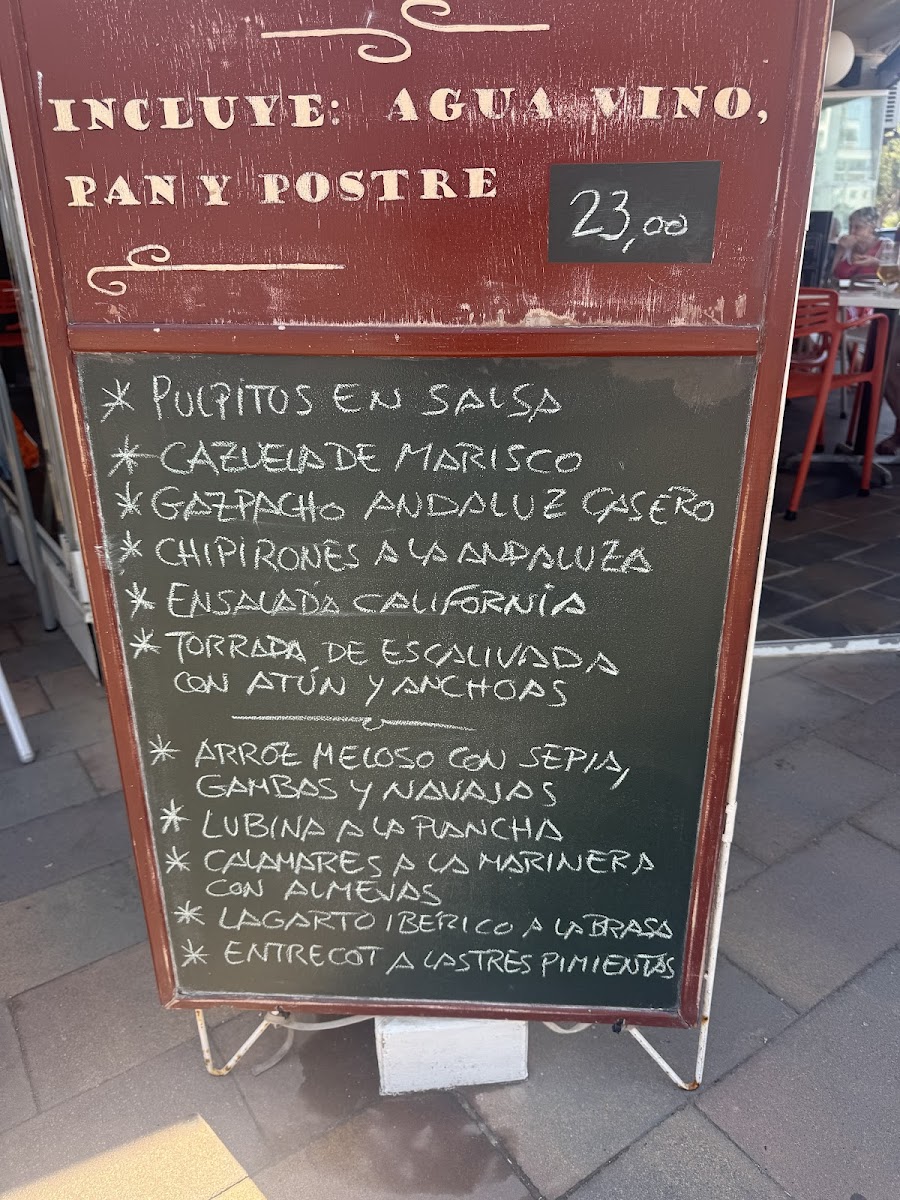 INCLUYE: AGUA VINO,
PAN Y POSTRE
23,00
* PULPITOS EN SALSA
* CAZUELA DE MARISCO
* GAZPACHO ANDALUZ CASERO
* CHIPIRONES A LA ANDALUZA
* ENSALADA CALIFORNIA
* TORRADA DE ESCALIVADA
CON ATÚN Y ANCHOAS
* ARROZ MELOSO CON SEPIA,
GAMBAS Y NAVAJAS
* LUBINA A LA PLANCHA
* CALAMARES A LA MARINERA
CON ALMEJAS
* LAGARTO IBERICO A LA BRASA
* ENTRECOT A LAS TRES PIMIENTAS